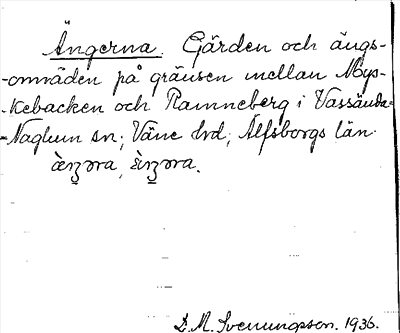 Ängerna. Gärden och ängs-
-områden på gränsen mellan Möys-
-kebacken och Ramneberg i Vassända-
-Naglum sn; Väne hrd; Älfsborgs län.
D. M. Svenungsson. 1936.